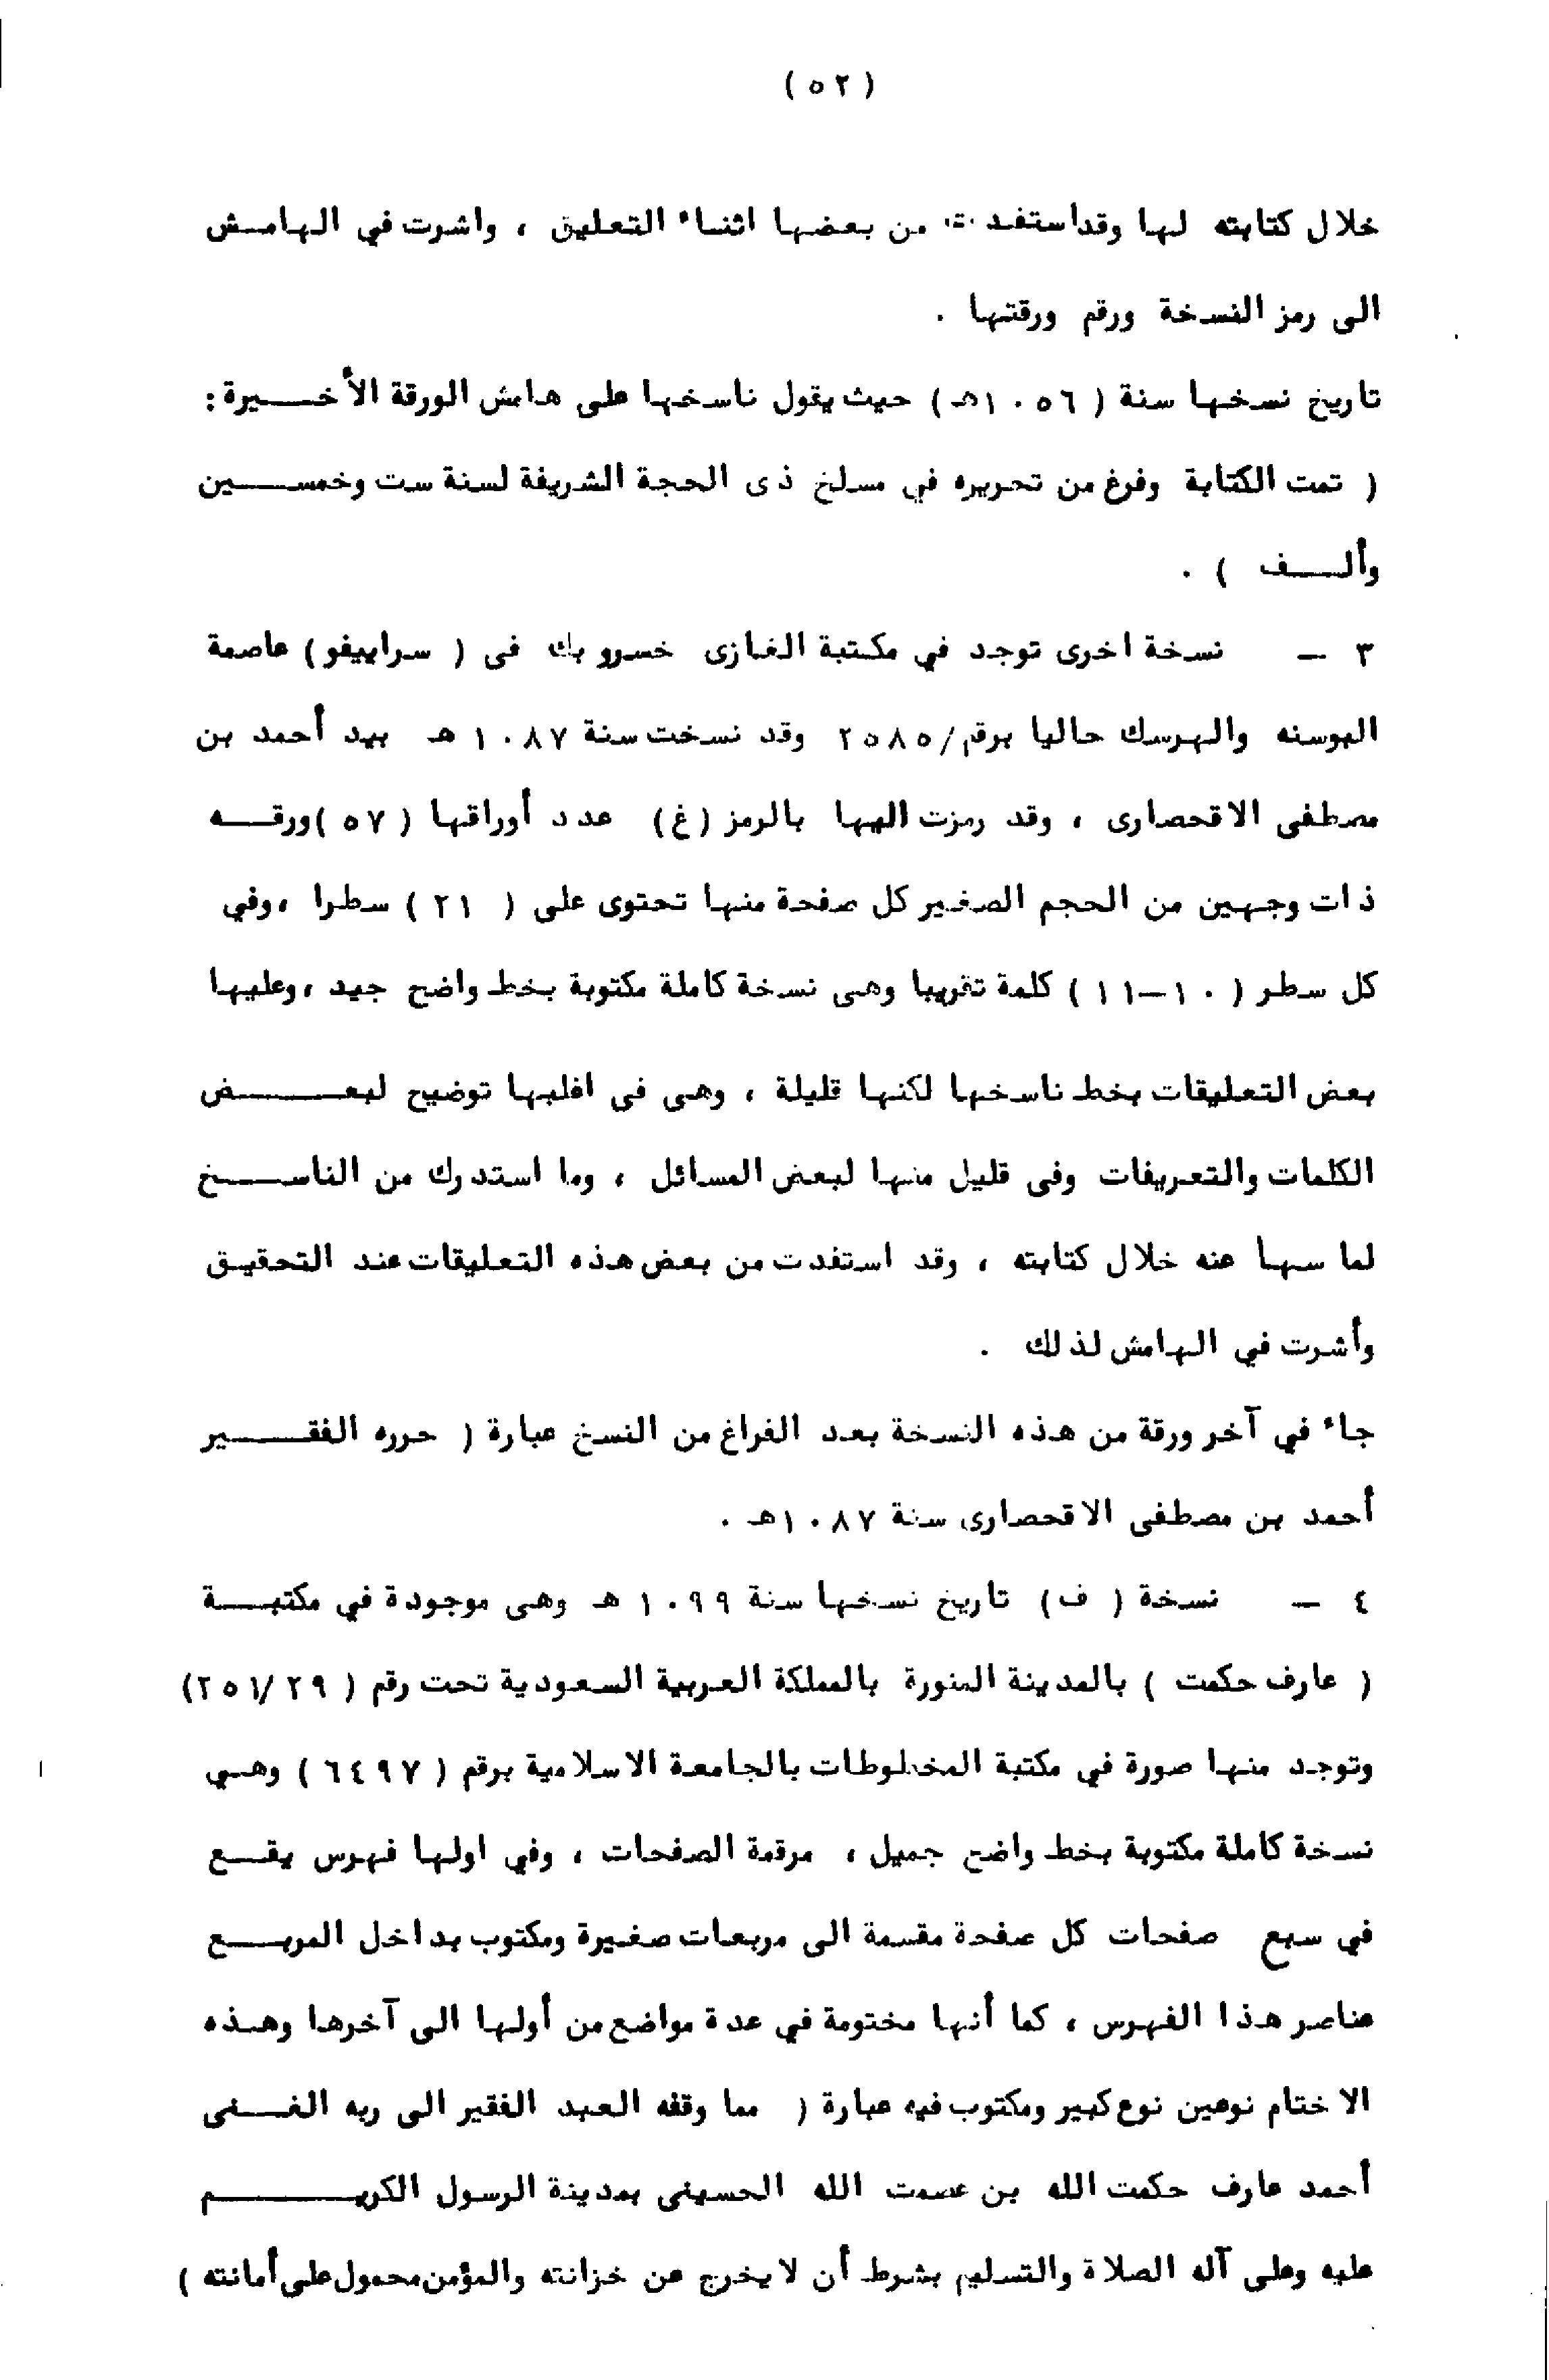 ( ٥٢ )
خلال كتابته لها وقداستفدت من بعضها اثناء التعليق ، واشرت في الهامش
الى رمز النسخة ورقم ورقتها .
تاريخ نسخها سنة ( ١٠٥٦هـ ) حيث يقول ناسخها على هامش الورقة الأخيرة :
( تمت الكتابة وفرغ من تحريره في مسلخ ذى الحجة الشريفة لسنة ست وخمسين
وألف ) .
٣ – نسخة اخرى توجد في مكتبة الغازى خسرو بك فى ( سراييفو ) عاصمة
البوسنه والهرسك حاليا برقم/٢٥٨٥ وقد نسخت سنة ١٠٨٧ هـ بيد أحمد بن
مصطفى الاقحصارى ، وقد رمزت اليها بالرمز (غ) عدد أوراقها ( ٥٧ )ورقه
ذات وجهين من الحجم الصغير كل صفحة منها تحتوى على ( ٢١ ) سطرا ،وفي
كل سطر ( ١٠–١١ ) كلمة تقريبا وهى نسخة كاملة مكتوبة بخط واضح جيد ،وعليها
بعض التعليقات بخط ناسخها لكنها قليلة ، وهى فى اغلبها توضيح لبعض
الكلمات والتعريفات وفى قليل منها لبعض المسائل ، وما استدرك من الناسخ
لما سها عنه خلال كتابته ، وقد استفدت من بعض هذه التعليقات عند التحقيق
وأشرت في الهامش لذلك .
جاء في آخر ورقة من هذه النسخة بعد الفراغ من النسخ عبارة ( حرره الفقير
أحمد بن مصطفى الاقحصارى سنة ١٠٨٧هـ .
٤ – نسخة ( ف ) تاريخ نسخها سنة ١٠٩٩ هـ وهى موجودة في مكتبة
( عارف حكمت ) بالمدينة المنورة بالمملكة العربية السعودية تحت رقم ( ٢٥١/٢٩)
وتوجد منها صورة في مكتبة المخطوطات بالجامعة الاسلامية برقم ( ٦٤٩٧ ) وهي
نسخة كاملة مكتوبة بخط واضح جميل ، مرقمة الصفحات ، وفي اولها فهرس يقع
في سبع صفحات كل صفحة مقسمة الى مربعات صغيرة ومكتوب بداخل المربع
عناصر هذا الفهرس ، كما أنها مختومة في عدة مواضع من أولها الى آخرها وهذه
الاختام نوعين نوع كبير ومكتوب فيه عبارة ( مما وقفه العبد الفقير الى ربه الغنى
أحمد عارف حكمت الله بن عصمت الله الحسينى بمدينة الرسول الكريم
عليه وعلى آله الصلاة والتسليم بشرط أن لايخرج عن خزانته والمؤمن محمول على أمانته )